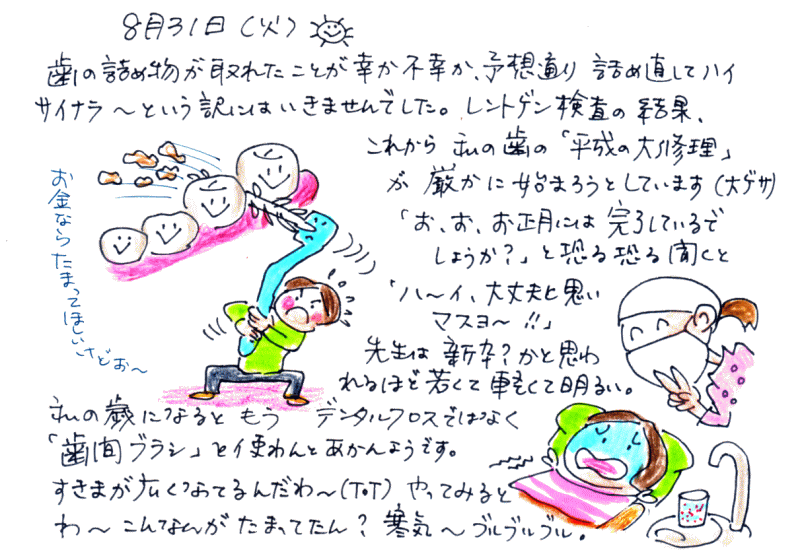 8月31日(火)
歯の詰め物が取れたことが幸か不幸か、予想通り 詰め直してハイ
サイナラ〜という訳にはいきませんでした。レントゲン検査の結果、
これから 私の歯の「平成の大修理」
が 厳かに始まろうとしています(大ゲサ)
「お、お、お正月には完了しているで
しょうか?」と恐る恐る聞くと
「ハ〜イ、大丈夫と思い
マスヨ〜!!」
先生は 新卒?かと思わ
れるほど若くて軽くて明るい。
お金なら たまってほしいけどぉ〜
私の歳になると もう デンタルフロスではなく
「歯間ブラシ」とイ使わんとあかんようです。
すきまが広くなってるんだわ〜(T0T) やってみると
わ〜こんなんが たまってたん? 寒気〜ブルブルブル。